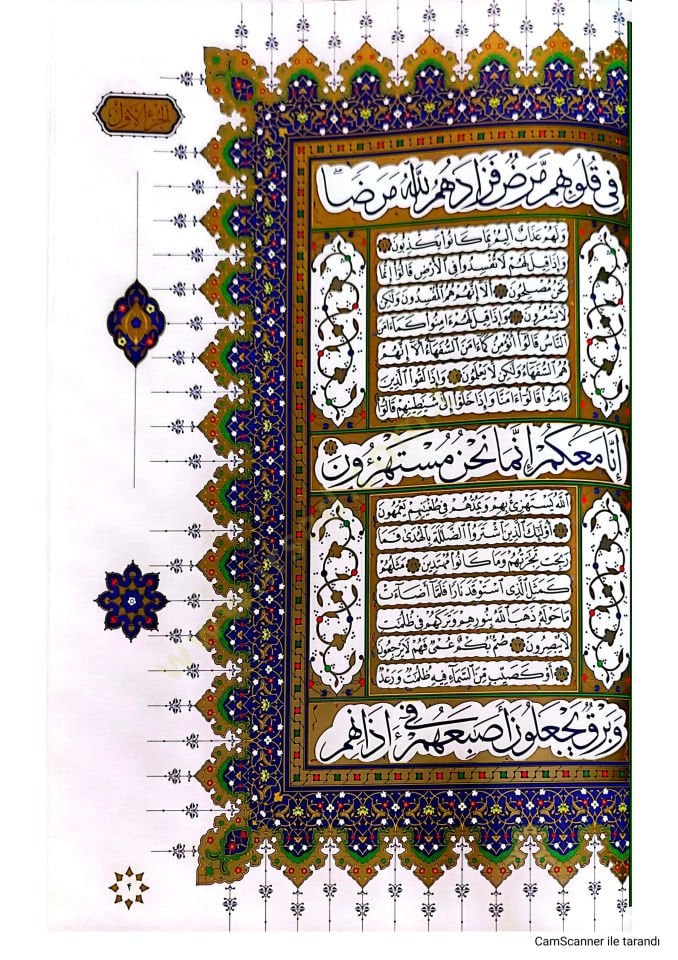 الجزء الأول
فِي قُلُوبِهِمْ مَّرَضٌ فَزَادَهُمُ اللَّهُ مَرَضًا
وَلَهُمْ عَذَابٌ أَلِيمٌ بِمَا كَانُوا يَكْذِبُونَ
وَإِذَا قِيلَ لَهُمْ لَا تُفْسِدُوا فِي الْأَرْضِ قَالُوا إِنَّمَا
نَحْنُ مُصْلِحُونَ أَلَا إِنَّهُمْ هُمُ الْمُفْسِدُونَ وَلَٰكِنْ
لَا يَشْعُرُونَ وَإِذَا قِيلَ لَهُمْ ءَامِنُوا كَمَا ءَامَنَ
النَّاسُ قَالُوا أَنُؤْمِنُ كَمَا ءَامَنَ السُّفَهَاءُ أَلَا إِنَّهُمْ
هُمُ السُّفَهَاءُ وَلَٰكِنْ لَا يَعْلَمُونَ وَإِذَا لَقُوا الَّذِينَ
ءَامَنُوا قَالُوا ءَامَنَّا وَإِذَا خَلَوْا إِلَىٰ شَيَٰطِينِهِمْ قَالُوا
إِنَّا مَعَكُمْ إِنَّمَا نَحْنُ مُسْتَهْزِءُونَ
اللَّهُ يَسْتَهْزِئُ بِهِمْ وَيَمُدُّهُمْ فِي طُغْيَٰنِهِمْ يَعْمَهُونَ
أُولَٰئِكَ الَّذِينَ اشْتَرَوُا الضَّلَٰلَةَ بِالْهُدَىٰ فَمَا
رَبِحَت تِّجَٰرَتُهُمْ وَمَا كَانُوا مُهْتَدِينَ مَثَلُهُمْ
كَمَثَلِ الَّذِي اسْتَوْقَدَ نَارًا فَلَمَّا أَضَاءَتْ
مَا حَوْلَهُ ذَهَبَ اللَّهُ بِنُورِهِمْ وَتَرَكَهُمْ فِي ظُلُمَٰتٍ
لَا يُبْصِرُونَ صُمٌّ بُكْمٌ عُمْيٌ فَهُمْ لَا يَرْجِعُونَ
أَوْ كَصَيِّبٍ مِّنَ السَّمَاءِ فِيهِ ظُلُمَٰتٌ وَرَعْدٌ
وَبَرْقٌ يَجْعَلُونَ أَصَٰبِعَهُمْ فِي ءَاذَانِهِمْ
CamScanner ile tarandı